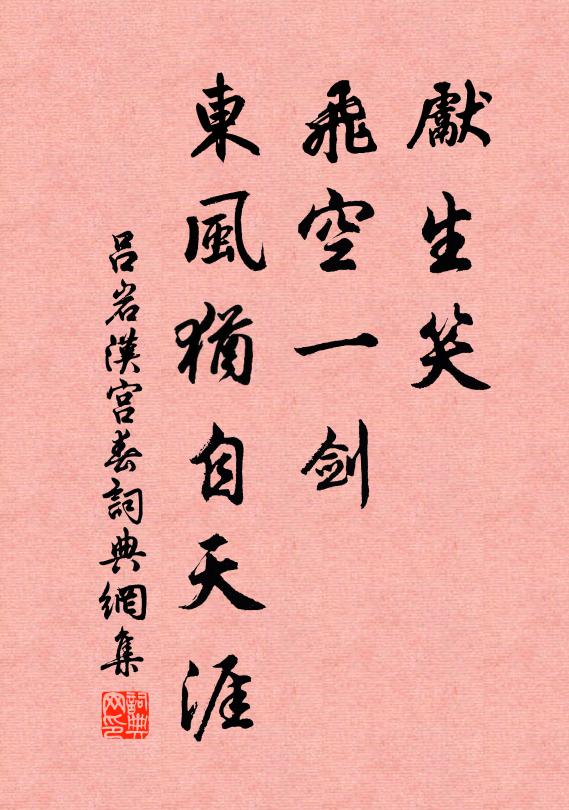 獻生笑
飛空一剑
東風猶自天涯
吕岩漢宮春詞典網集
詞典网印